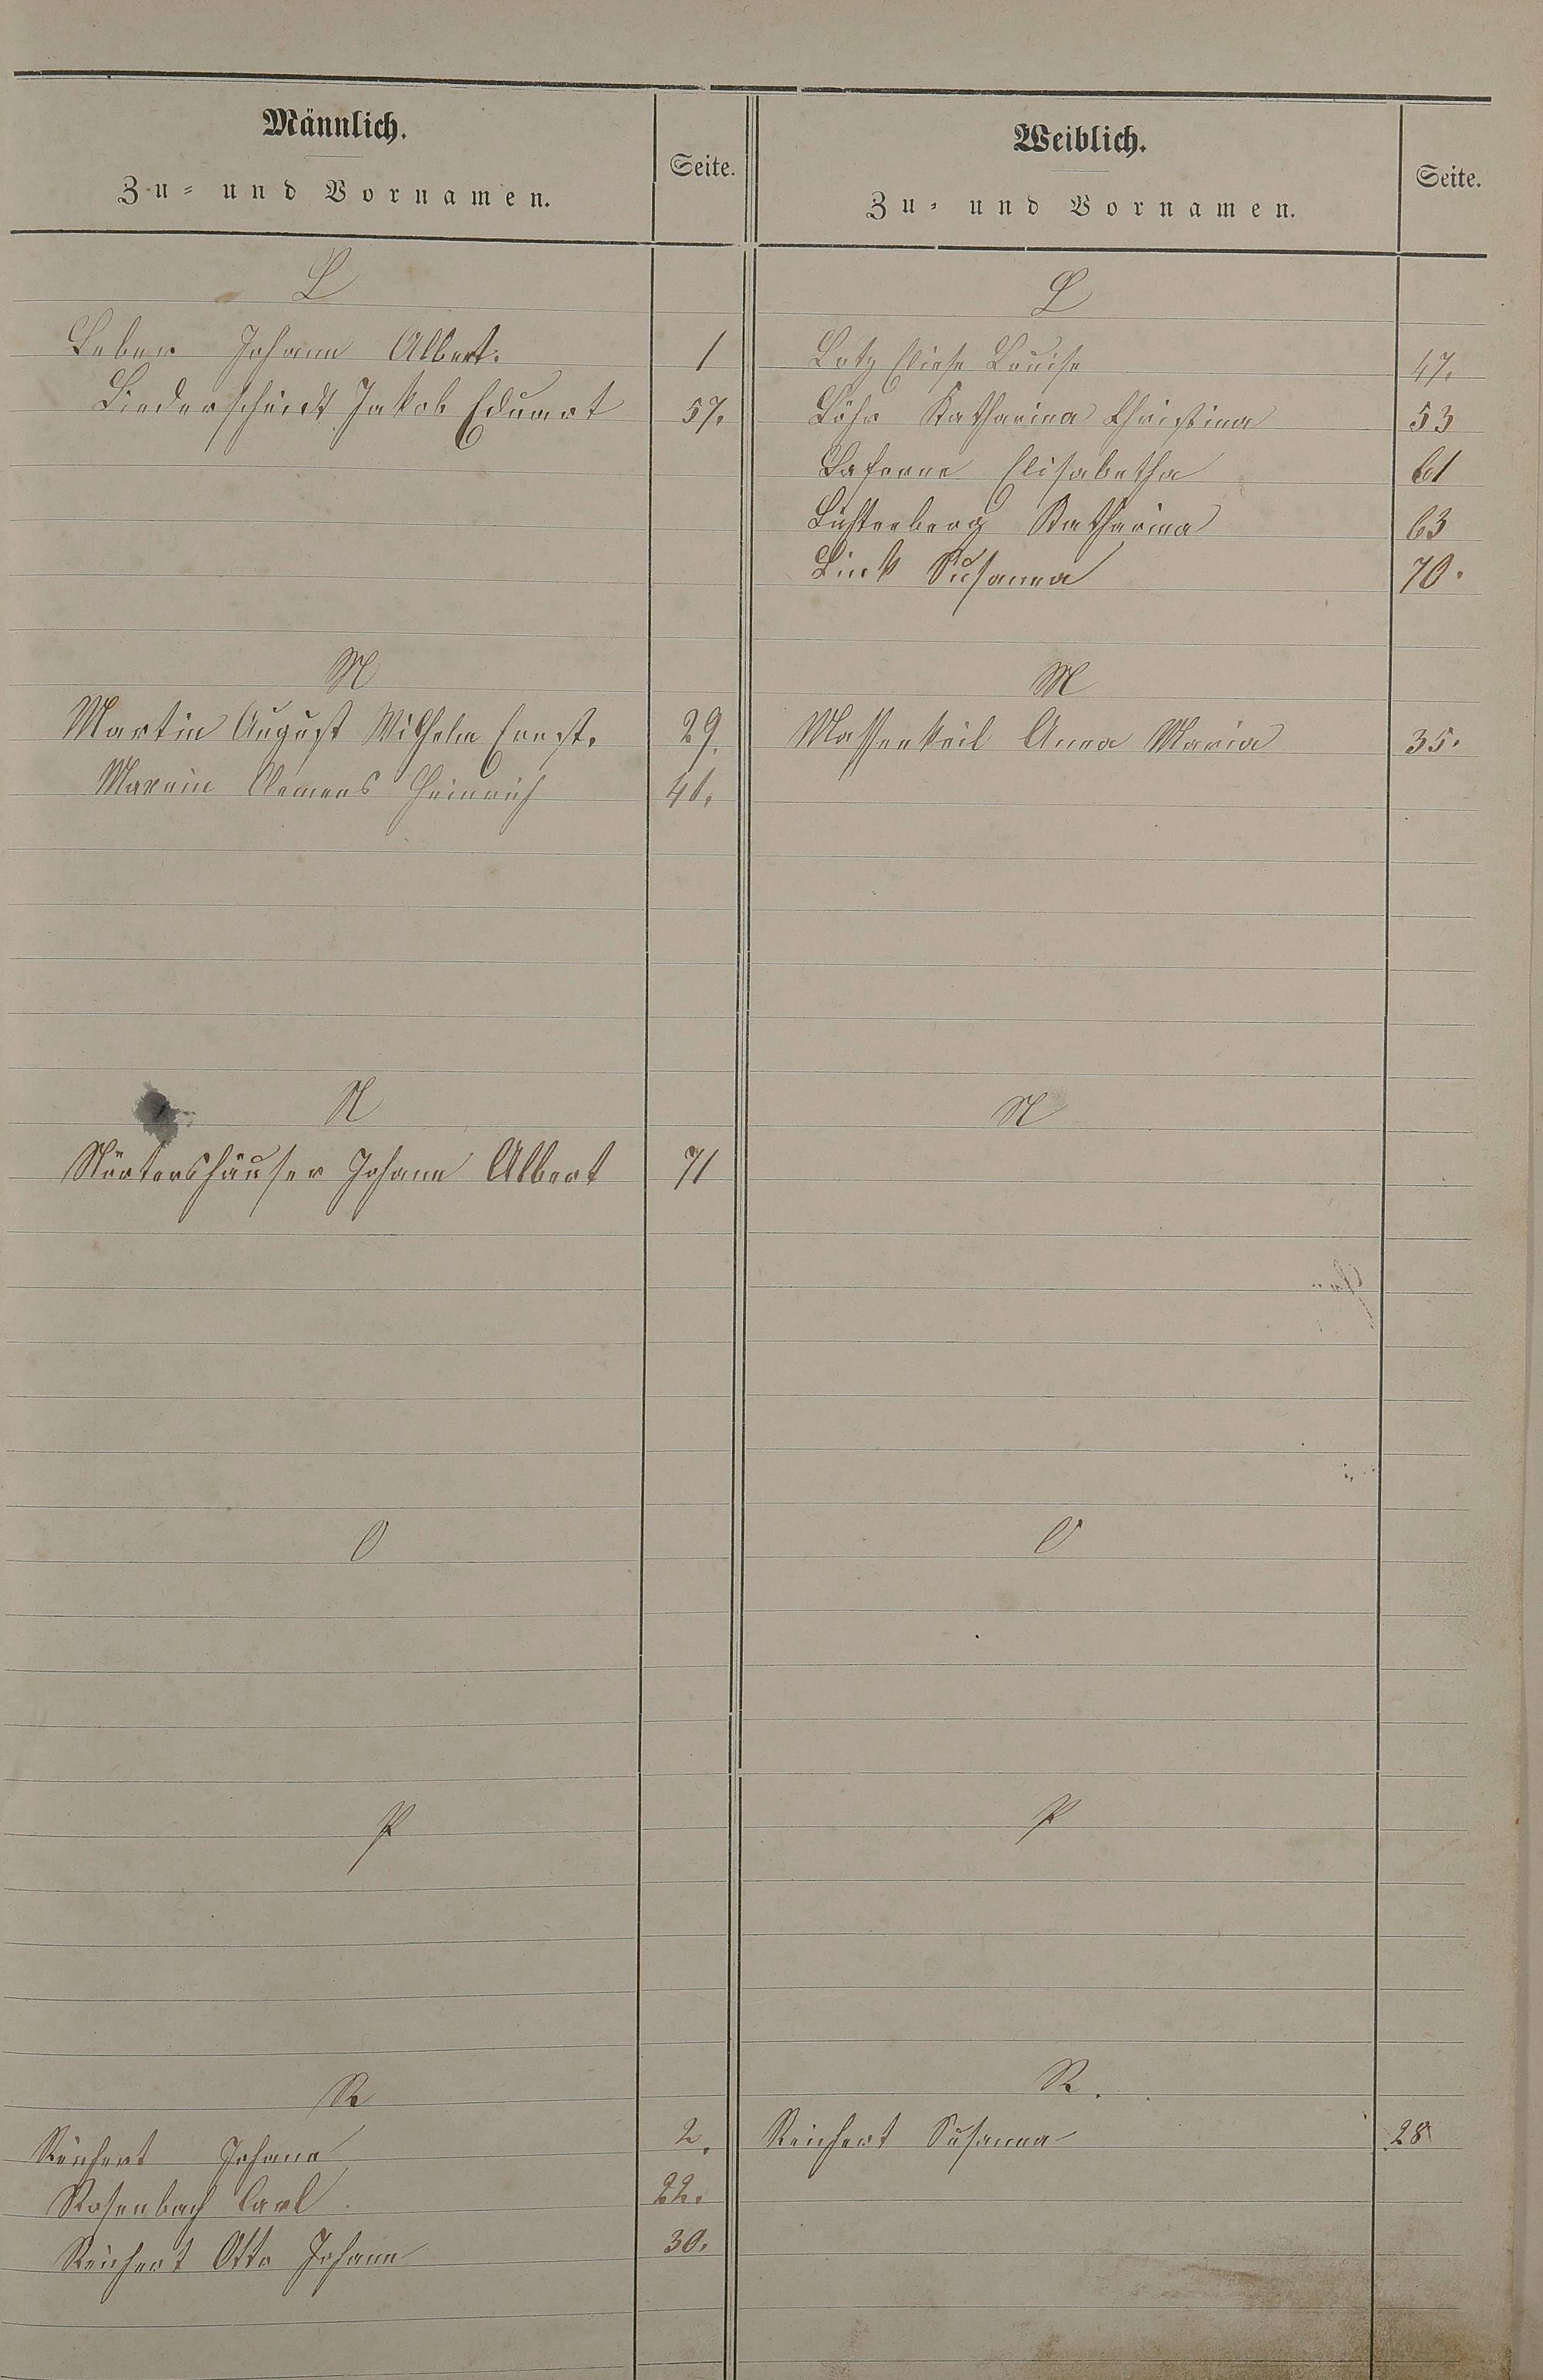 Männlich.
Zu- und Vornamen.
Seite.
Weiblich.
Zu- und Vornamen.
Seite.
L
Leber Johann Albert. 1
Liederscheidt Jakob Eduart 57.
L
Lotz Eliese Louise 47.
Löhr Katharina Christina 53
Laferne Elisabetha 61
Lichterberg Katharina 63
Link Susanna 70.
M
Martin August Wilhelm Ernst. 29.
Maxein Clemens Heinrich 41.
M
Massenkeil Anna Maria 35.
N
Nörtershäuser Johann Albert 71
N
O
O
P
P
R
Reichert Johann 2.
Rosenbach Carl 22.
Reichert Otto Johann 30.
R.
Reichert Susanna 28